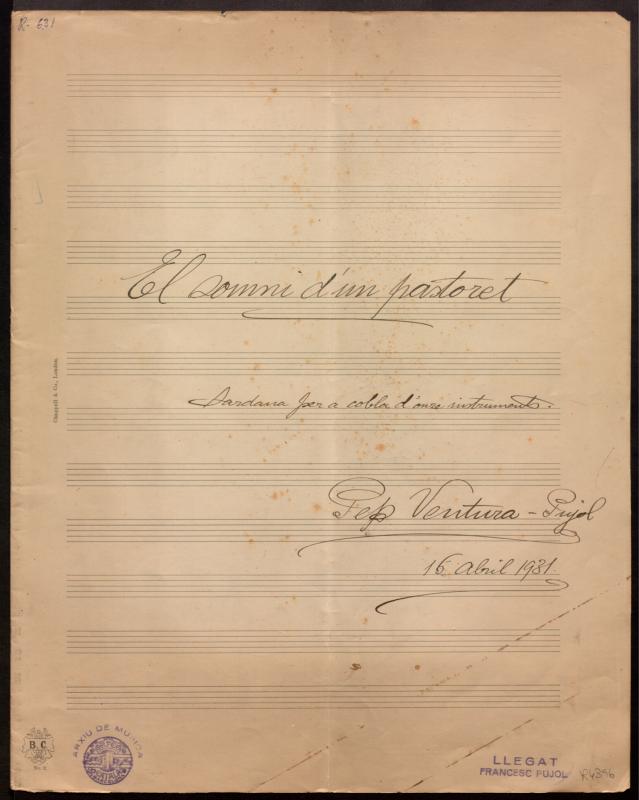 R- 631
El somni d'un pastoret
Sardana per a cobla d'onze instruments.
Pep Ventura - Pujol
16 Abril 1931
Chappell & Co., London.
B.C.
ARXIU DE MÚSICA
LLEGAT
FRANCESC PUJOL